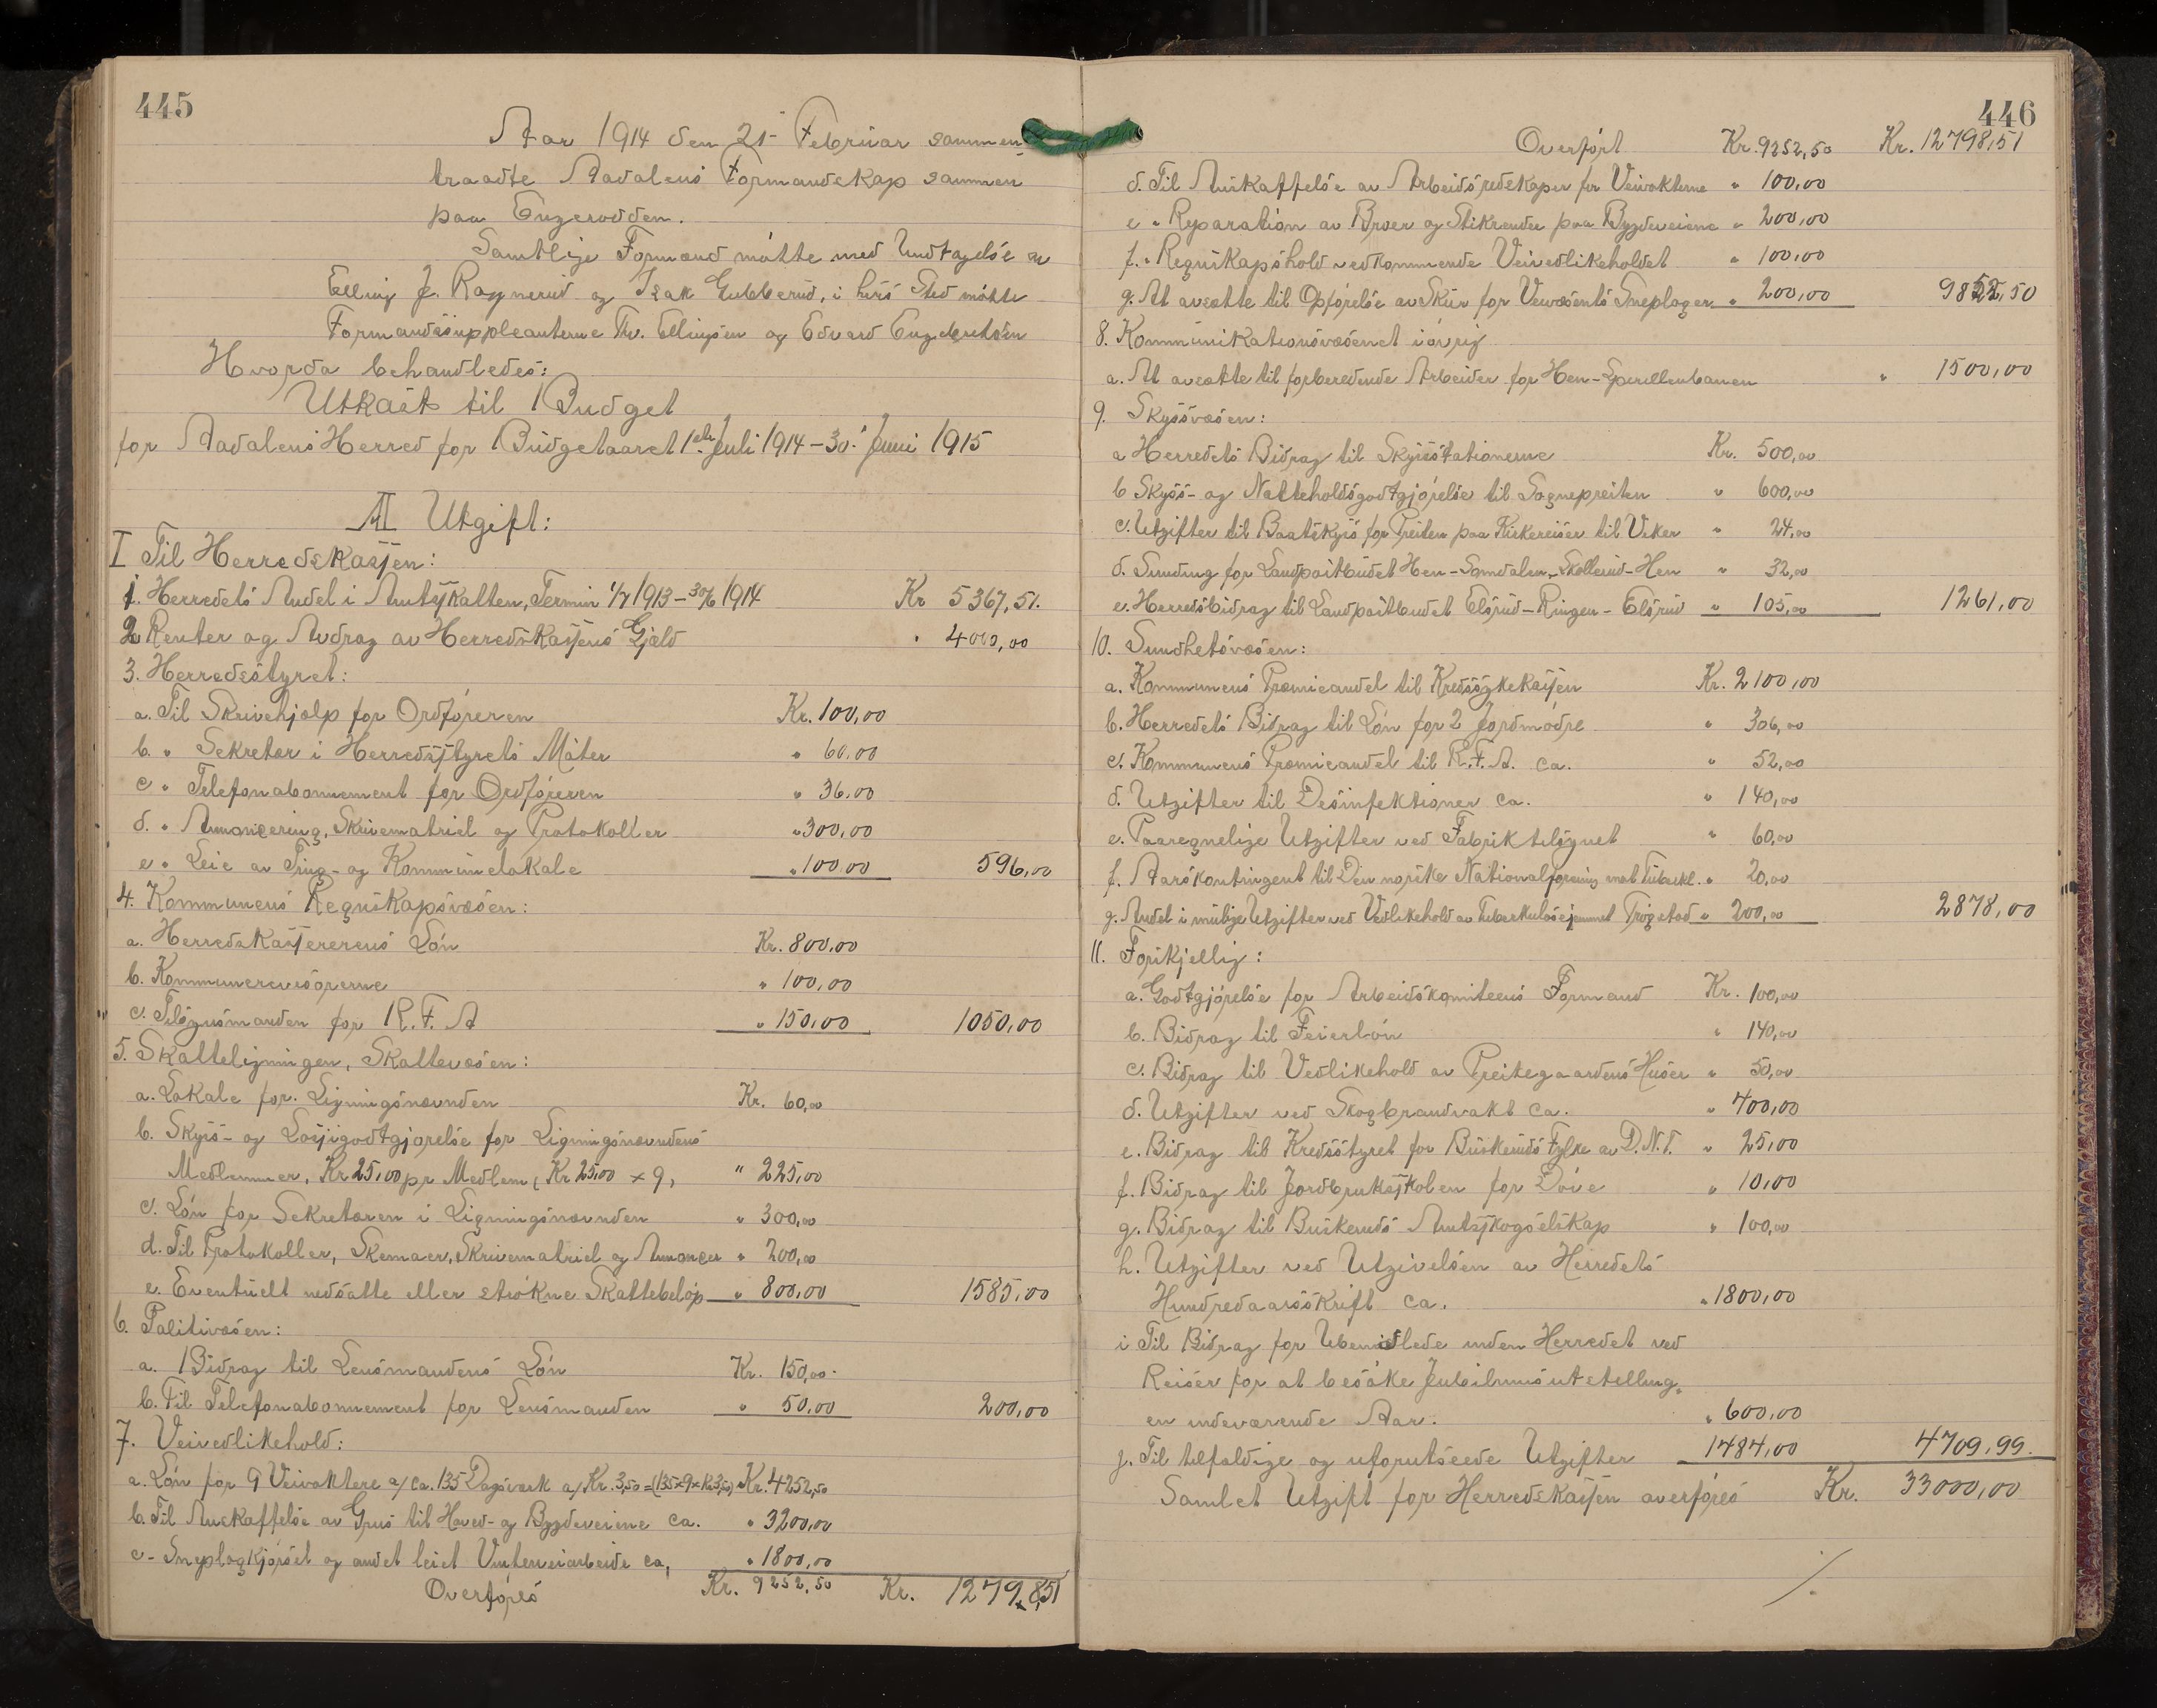 445
Aar 1914 den 21 Februar sammen
traadte Aadalens Formandskap sammen
paa Engerodden.
Samtlige Formænd møtte med Undtagelse av
Elling J. Ragnerud og Isak Gubberud, i hvis Sted møtte
Formandssuppleanterne Thv. Ellingsen og Edvard Engebretsen
Hvorda behandledes:
Utkast til Budget
for Aadalens Herred for Budgetaaret 1ste Juli 1914 – 30. Juni 1915
A Utgift:
I Til Herredskassen:
1. Herredets Andel i Amtsskatten, Termin 1/7 1913 – 30/6 1914 Kr 5367,51.
2 Renter og Avdrag av Herredskassens Gjæld " 4000,00
3. Herredsstyret:
a. Til Skrivehjælp for Ordføreren Kr. 100,00
b. " Sekretær i Herredsstyrets Møter " 60.00
c " Telefonabonnement for Ordføreren " 36.00
d. " Annoncering, Skrivematriel og Protokoller " 300,00
e " Leie av Ting- og Kommunelokale " 100.00 596,00
4. Kommunens Regnskapsvæsen:
a. Herredskassererens Løn Kr. 800,00
b. Kommunerevisorerne " 100,00
c. Tilsynsmanden for R. F. A " 150,00 1050,00
5. Skatteligningen, Skattevæsen:
a. Lokale for Ligningsnævnden Kr. 60,00
b. Skyss- og Losjigodtgjørelse for Ligningsnævndens
Medlemmer, Kr 25,00 pr Medlem, Kr 25,00 × 9, " 225,00
c. Løn for Sekretæren i Ligningsnævnden " 300,00
d. Til Protokoller, Skemaer, Skrivematriel og Annoncer " 200,00
e. Eventuelt nedsatte eller strøkne Skattebeløp " 800,00 1585,00
6. Politivæsen:
a. Bidrag til Lensmandens Løn Kr. 150,00
b. Til Telefonabonnement for Lensmanden " 50,00 200,00
7. Veivedlikehold:
a. Løn for 9 Veivoktere a/ ca. 135 Dagsverk a/ Kr. 3,50 = (135 × 9 × Kr 3,50) Kr. 4252,50
b. Til Anskaffelse av Grus til Hoved- og Bygdeveiene ca. " 3200,00
c - Sneplogkjørsel og andet leiet Vinterveiarbeide ca, " 1800,00
Overføres Kr. 9252,50 Kr. 12798,51
446
Overført Kr. 9252,50 Kr. 12798,51
d. Til Anskaffelse av Arbeidsredskaper for Veivokterne " 100,00
e " Reparation av Broer og Stikrender paa Bygdeveiene " 200,00
f. " Regnskapshold vedkommende Veivedlikeholdet " 100,00
g. At avsætte til Opførelse av Skur for Veivæsents Sneploger " 200,00 9852,50
8. Kommunikationsvæsenet iøvrig
a. At avsætte til forberedende Arbeider for Hen-Sperillenbanen " 1500,00
9. Skyssvæsen:
a Herredets Bidrag til Skysstationerne Kr. 500,00
b Skyss- og Natteholdsgodtgjørelse til Sognepresten " 600,00
c. Utgifter til Baatskyss for Presten paa Kirkereiser til Viker " 24,00
d. Sunding for Landpostbudet Hen – Somdalen – Skollerud – Hen " 32,00
e. Herredsbidrag til Landpostbudet Elsrud – Ringen – Elsrud " 105,00 1261,00
10. Sundhetsvæsen:
a. Kommunens Præmieandel til Kredssykekassen Kr. 2100,00
b. Herredets Bidrag til Løn for 2 Jordmødre " 306,00
c. Kommunens Præmieandel til R. F. A. ca. " 52,00
d. Utgifter til Desinfektioner ca. " 140,00
e. Paaregnelige Utgifter ved Fabriktilsynet " 60,00
f. Aarskontingent til Den norske Nationalforening mot Tuberkl. " 20,00
g. Andel i mulige Utgifter ved Vedlikehold av Tuberkulosehjemmet Trøgstad " 200,00 2878,00
11. Forskjellig:
a. Godtgjørelse for Arbeidskomiteens Formand Kr. 100,00
b. Bidrag til Feierløn " 140,00
c. Bidrag til Vedlikehold av Prestegaardens Huser " 50,00
d. Utgifter ved Skogbrandvakt ca. " 400,00
e. Bidrag til Kredsstyret for Buskeruds Fylke av D. N. T. " 25,00
f. Bidrag til Jordbruksskolen for Døve " 10,00
g. Bidrag til Buskeruds Amtsskogselskap " 100,00
h. Utgifter ved Utgivelsen av Herredets
Hundredaarsskrift ca. " 1800,00
i Til Bidrag for Ubemidlede inden Herredet ved
Reiser for at besøke Jubilæumsutstilling-
en indeværende Aar. " 600,00
j. Til tilfældige og uforutseede Utgifter 1484,00 4709,99.
Samlet Utgift for Herredskassen overføres Kr. 33000,00
./.